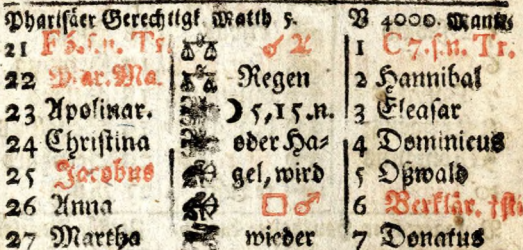 Pharisäer Gerechtigk Matth 5. V 4000. Mann
21 F 5. s. n. Tr ☌ ♃ 1 C 7. s. n. Tr.
22 Regen 2 Hannibal
23 Apolinar. ☽ 5,15. n. 3 Eleasar
24 Christina oder Ha- 4 Dominicus
25 Jacobus gel, wird 5 Oßwald
26 Anna □ ♂ 6 Verklär.
27 Martha wieder 7 Donatus